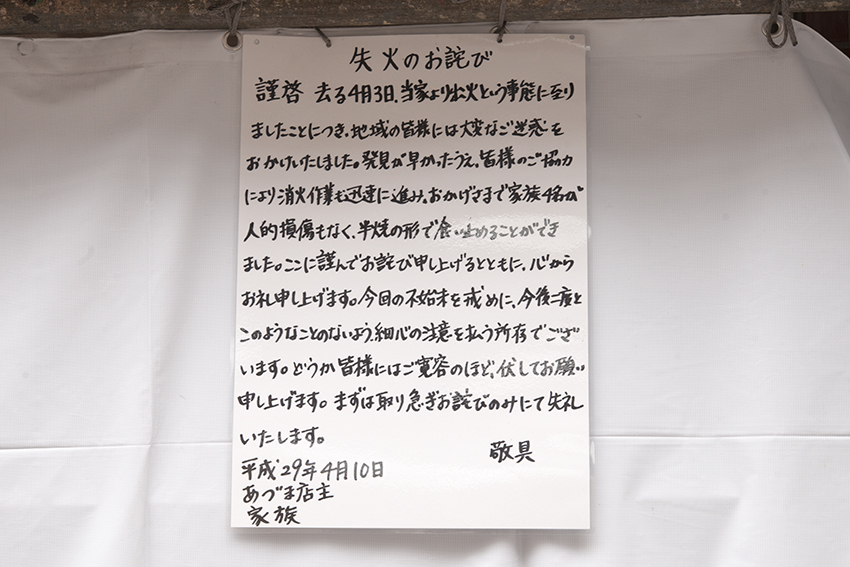 失火のお詫び
謹啓 去る4月3日、当家より出火という事態に至り
ましたことにつき、地域の皆様には大変なご迷惑を
おかけいたしました。発見が早かったうえ、皆様のご協力
により消火作業も迅速に進み、おかげさまで家族4名が
人的損傷もなく、半焼の形で食い止めることができ
ました。ここに謹んでお詫び申し上げるとともに、心から
お礼申し上げます。今回の不始末を戒めに、今後二度と
このようなことのないよう、細心の注意を払う所存でござ
います。どうか皆様にはご寛容のほど、伏してお願い
申し上げます。まずは取り急ぎお詫びのみにて失礼
いたします。
敬具
平成29年4月10日
あづま店主
家族